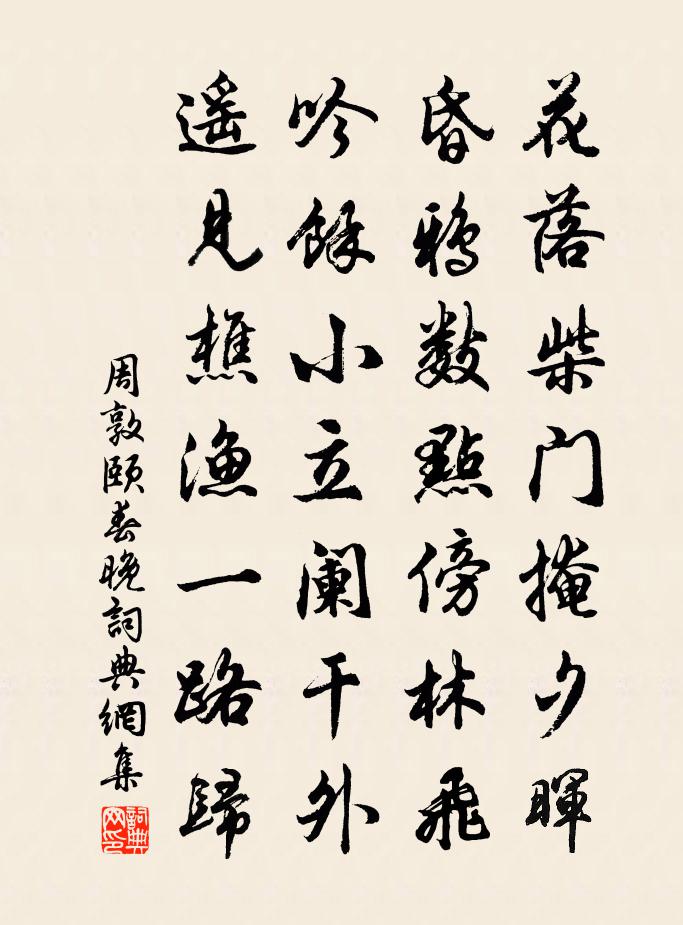 花落柴门掩夕暉
昏鴉數點傍林飛
吟餘小立阑干外
遥見樵漁一路歸
周敦頤春晚詞典網集
詞典网印